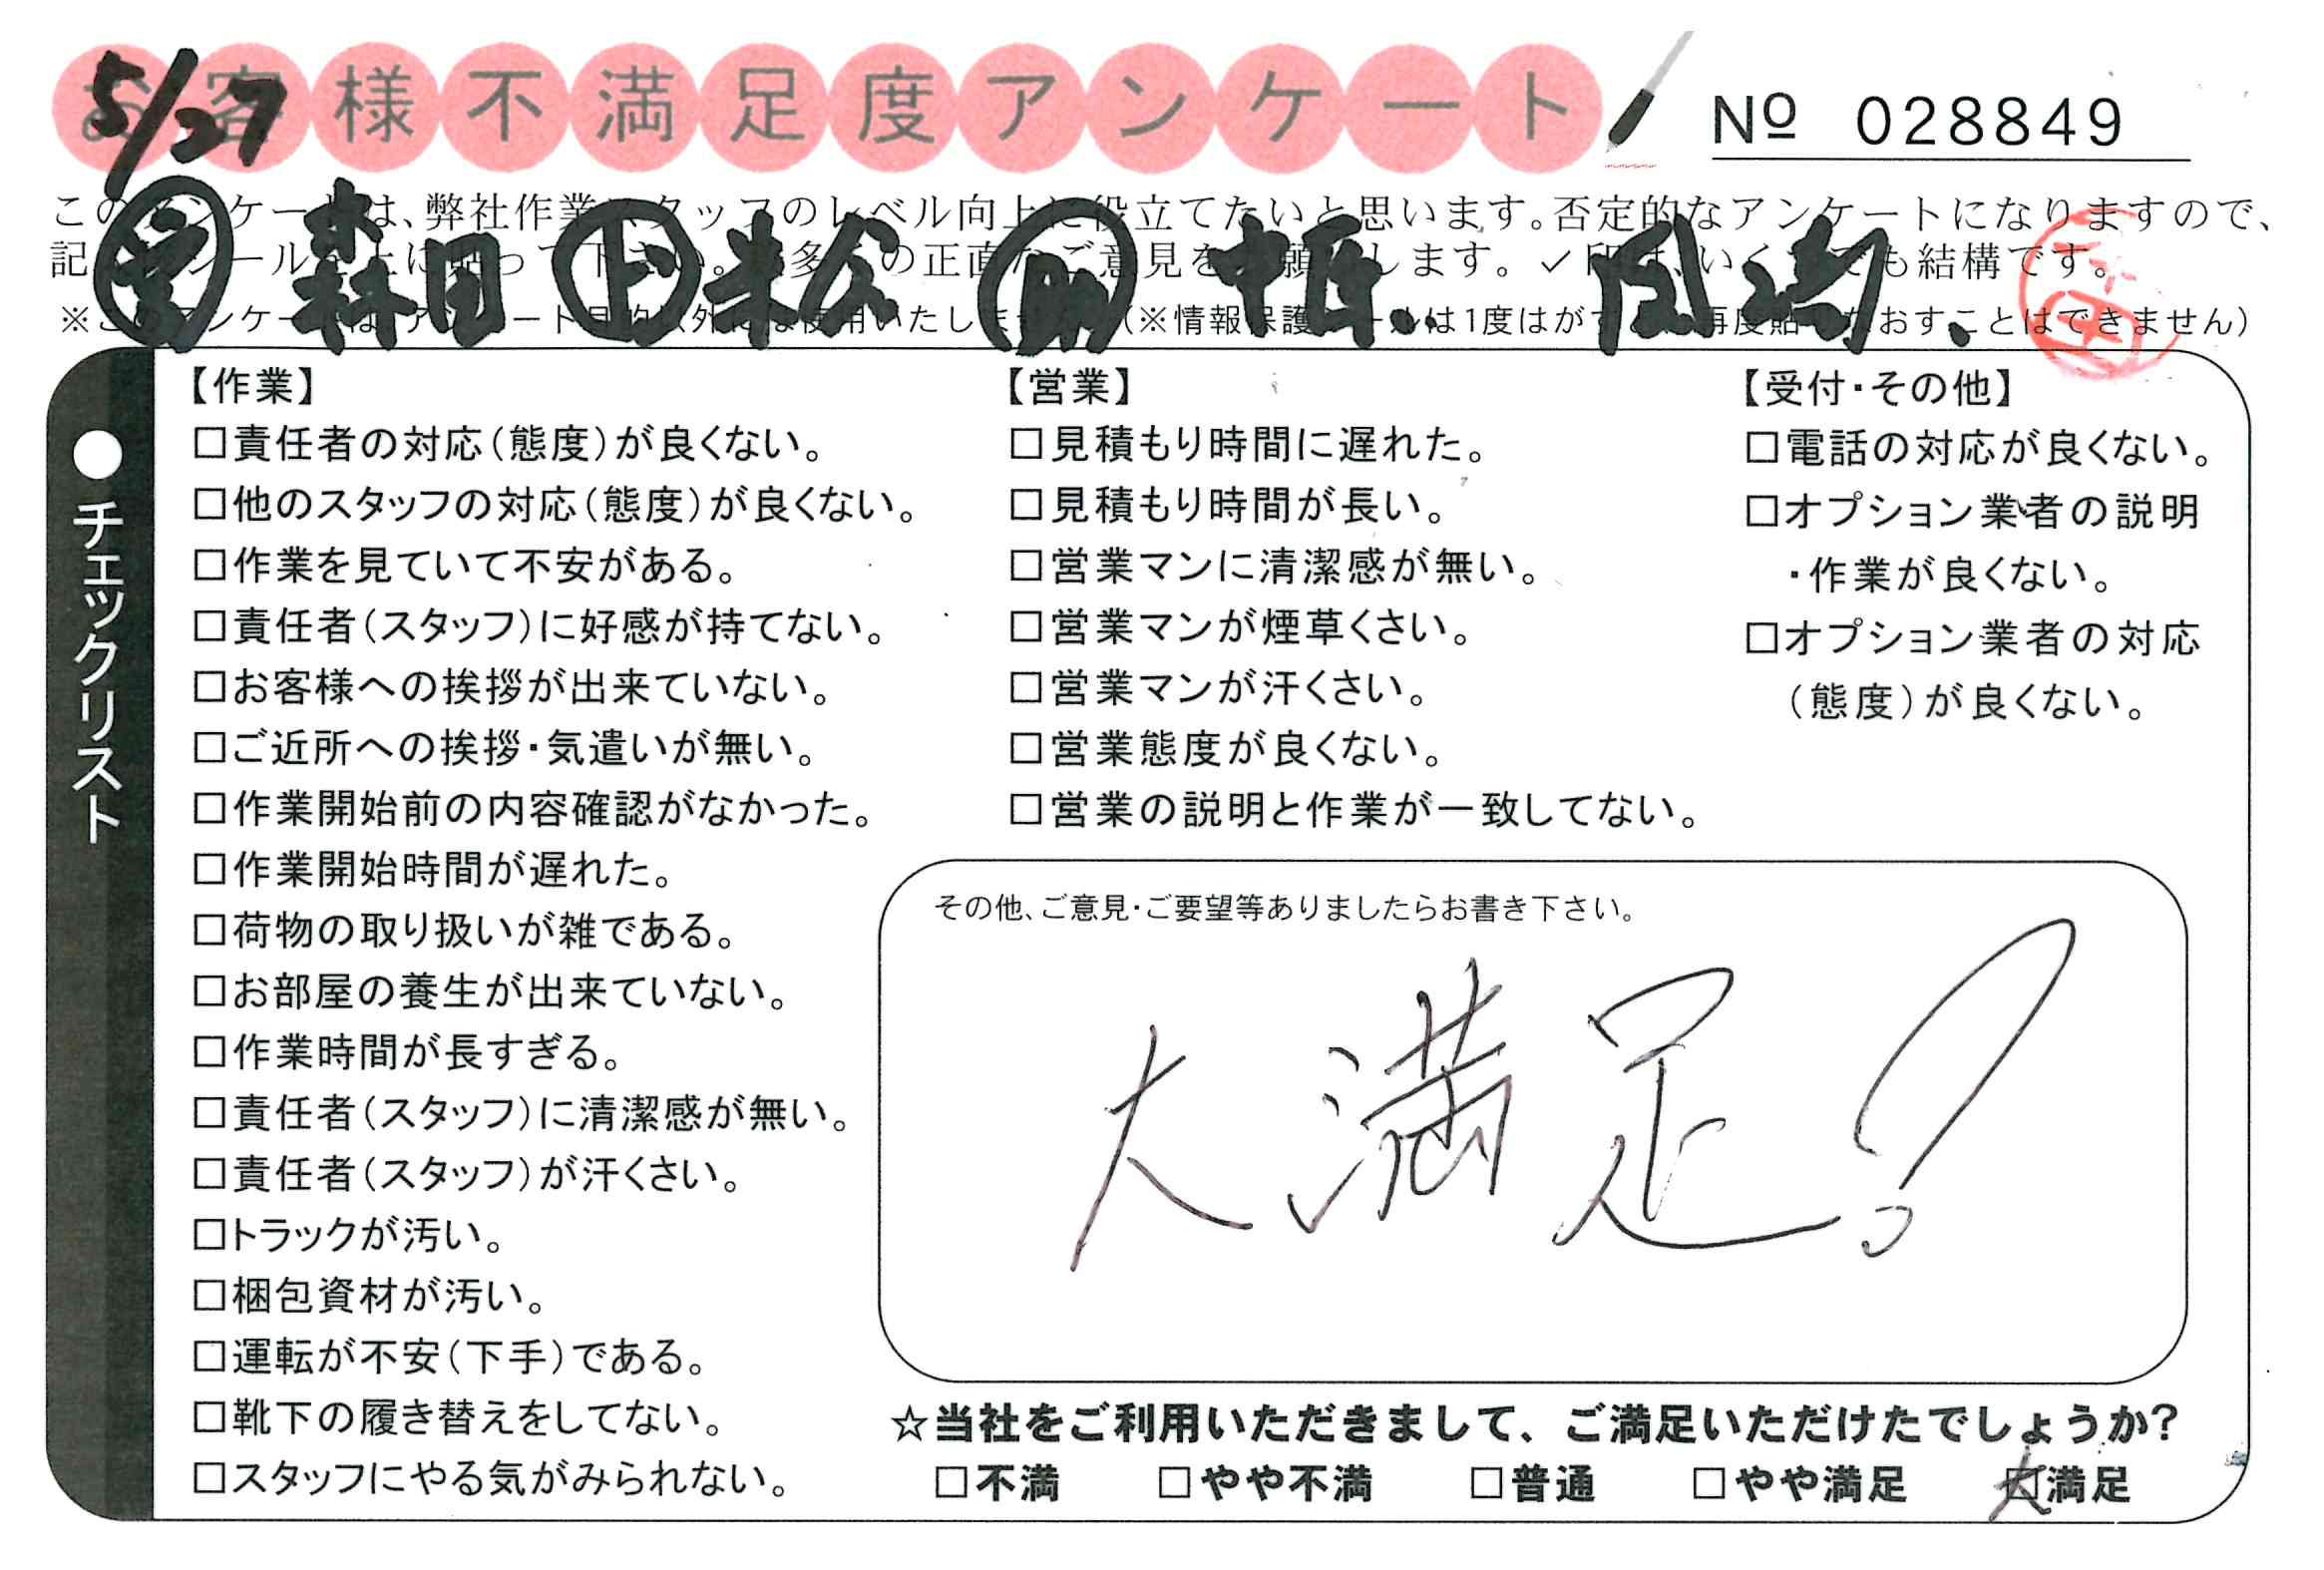 お客様不満足度アンケート
№ 028849
5/27
このアンケートは、弊社作業スタッフのレベル向上に役立てたいと思います。否定的なアンケートになりますので、
㊡ 森田 ド 米谷 助 中
【作業】
□責任者の対応(態度)が良くない。
□他のスタッフの対応(態度)が良くない。
□作業を見ていて不安がある。
□責任者(スタッフ)に好感が持てない。
□お客様への挨拶が出来ていない。
□ご近所への挨拶・気遣いが無い。
□作業開始前の内容確認がなかった。
□作業開始時間が遅れた。
□荷物の取り扱いが雑である。
□お部屋の養生が出来ていない。
□作業時間が長すぎる。
□責任者(スタッフ)に清潔感が無い。
□責任者(スタッフ)が汗くさい。
□トラックが汚い。
□梱包資材が汚い。
□運転が不安(下手)である。
□靴下の履き替えをしてない。
□スタッフにやる気がみられない。
【営業】
□見積もり時間に遅れた。
□見積もり時間が長い。
□営業マンに清潔感が無い。
□営業マンが煙草くさい。
□営業マンが汗くさい。
□営業態度が良くない。
□営業の説明と作業が一致してない。
【受付・その他】
□電話の対応が良くない。
□オプション業者の説明
・作業が良くない。
□オプション業者の対応
(態度)が良くない。
●チェックリスト
その他、ご意見・ご要望等ありましたらお書き下さい。
大満足!
☆当社をご利用いただきまして、ご満足いただけたでしょうか?
□不満 □やや不満 □普通 □やや満足 大満足